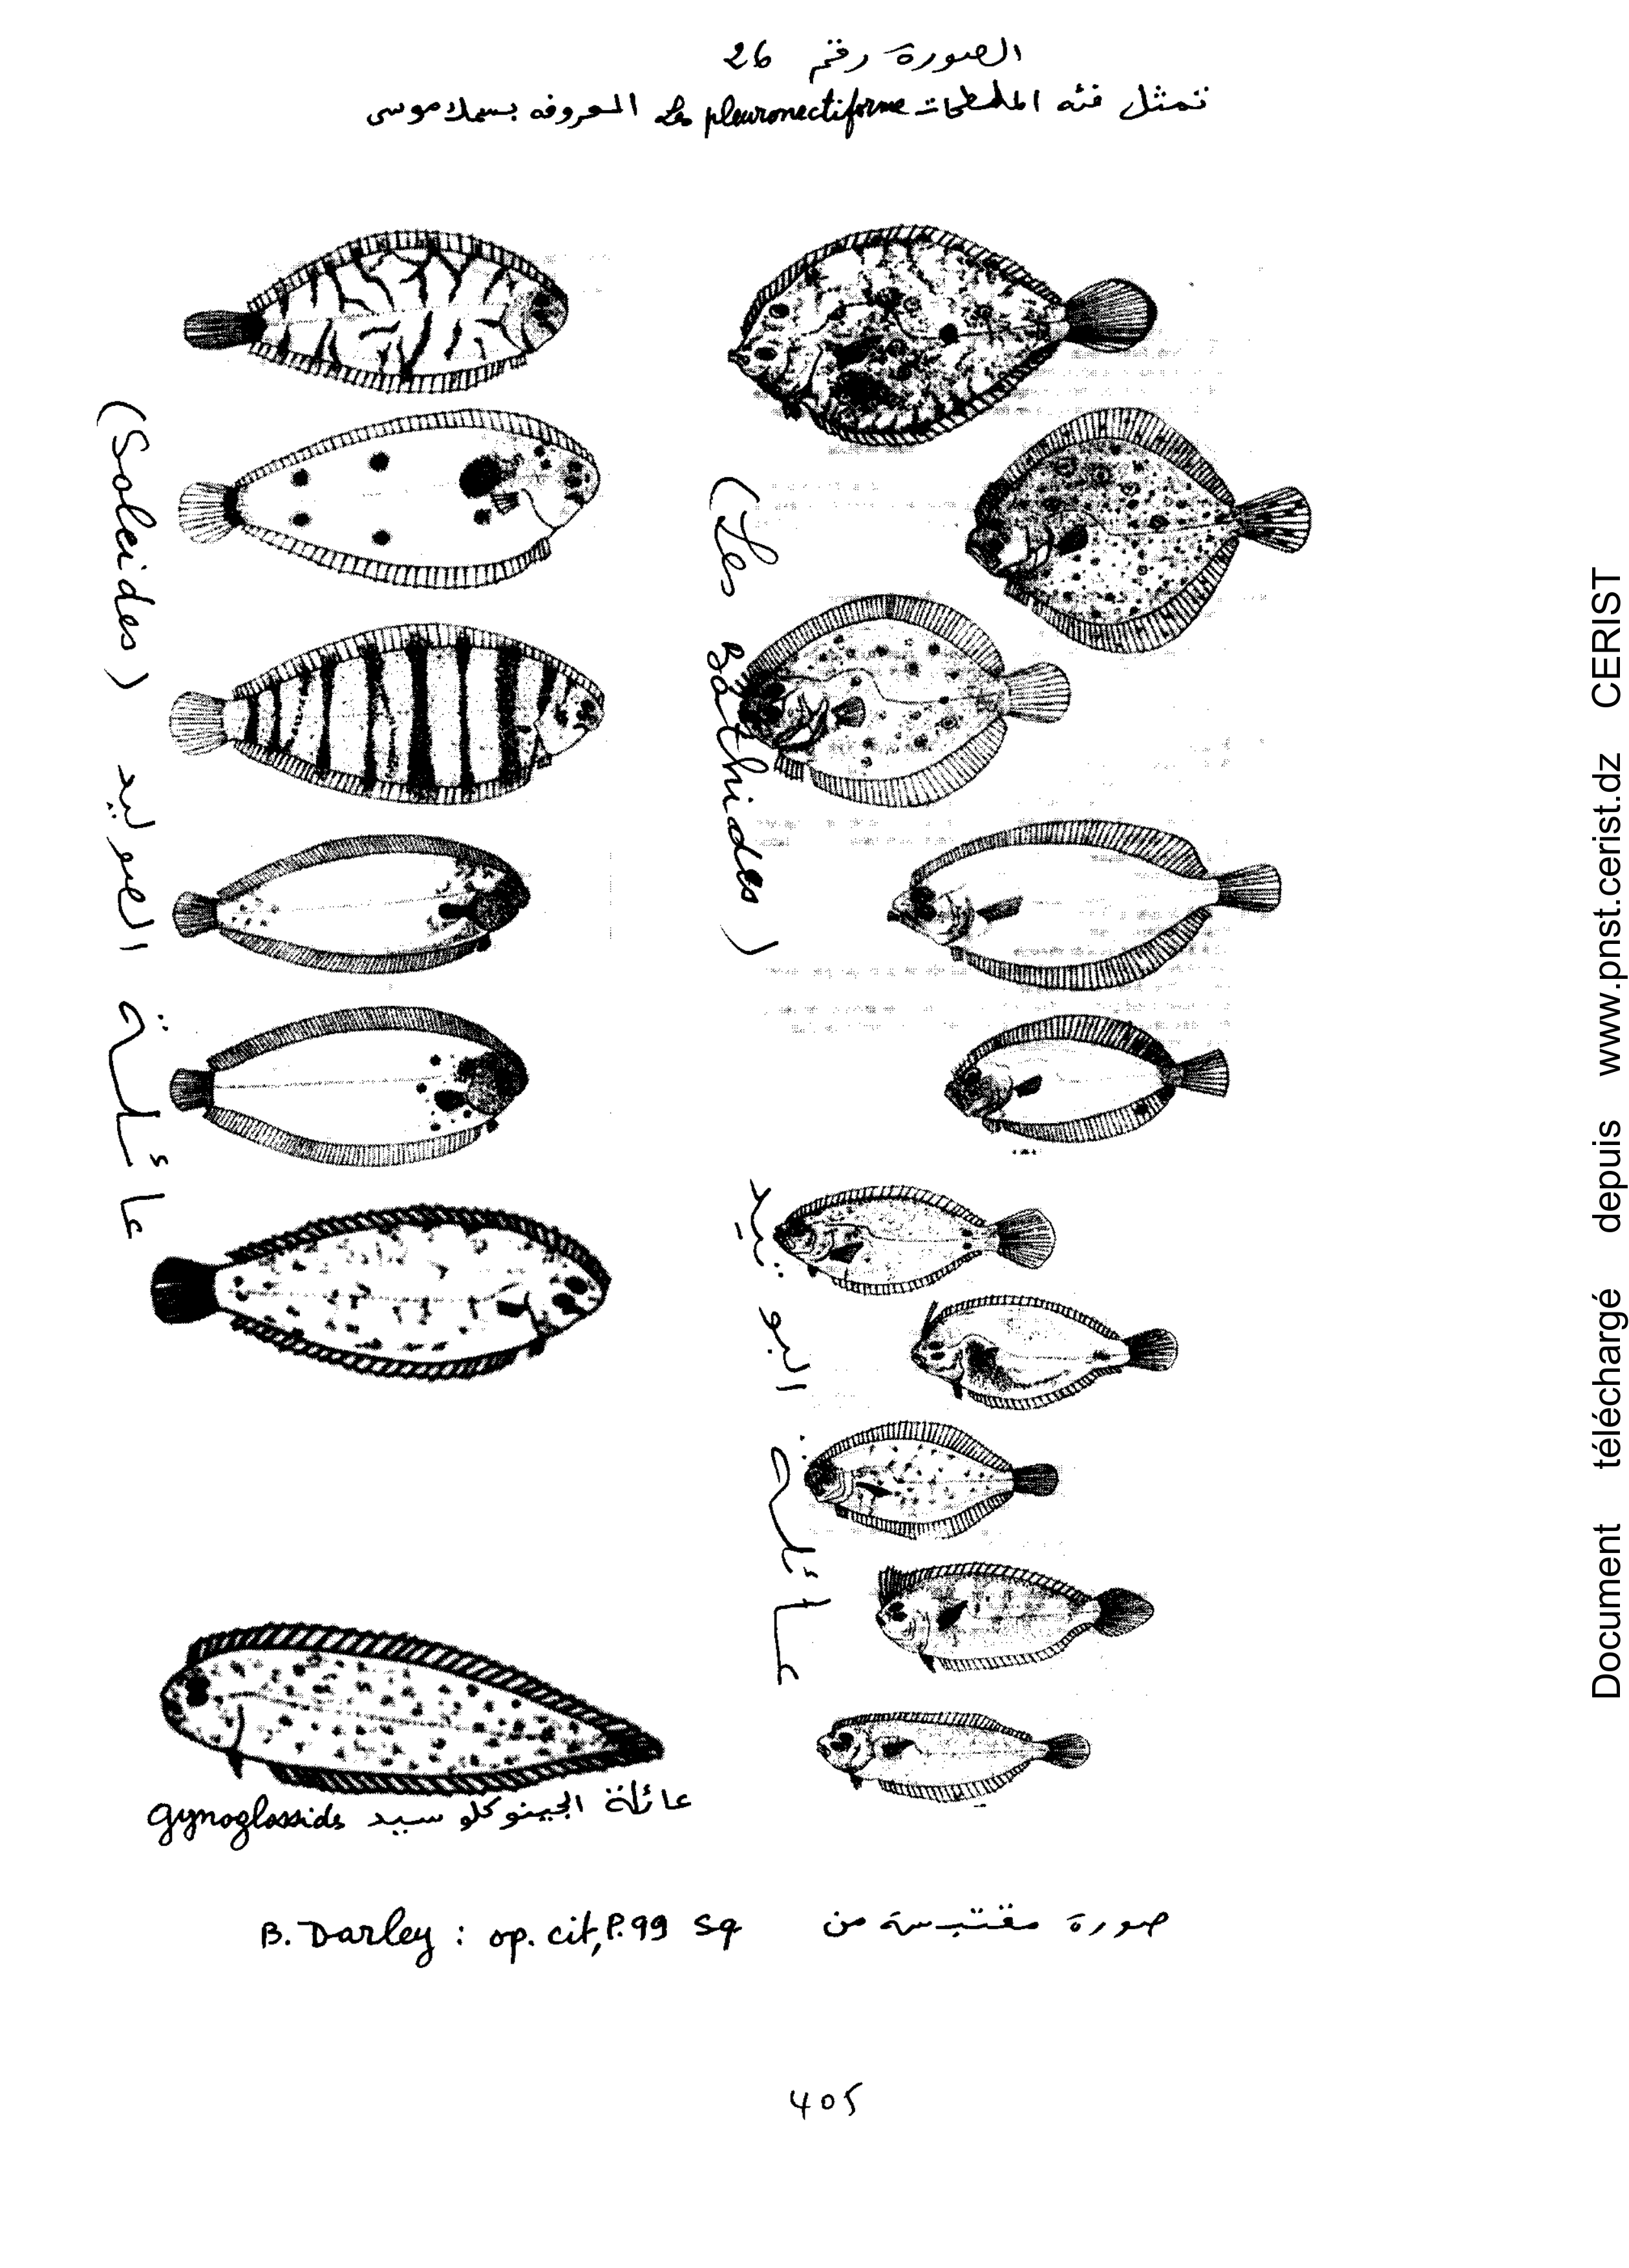 الصورة رقم 26
تمثل فئة المفلطحات Les pleuronectiforme المعروفة بسمك موسى
عائلة الصوليد (Soleides)
عائلة البوتيد (Les Bothides)
عائلة الجينوكلوسيد Gynoglossids
صورة مقتبسة من B. Darley : op. cit, P.99 Sq
405
Document téléchargé depuis www.pnst.cerist.dz CERIST